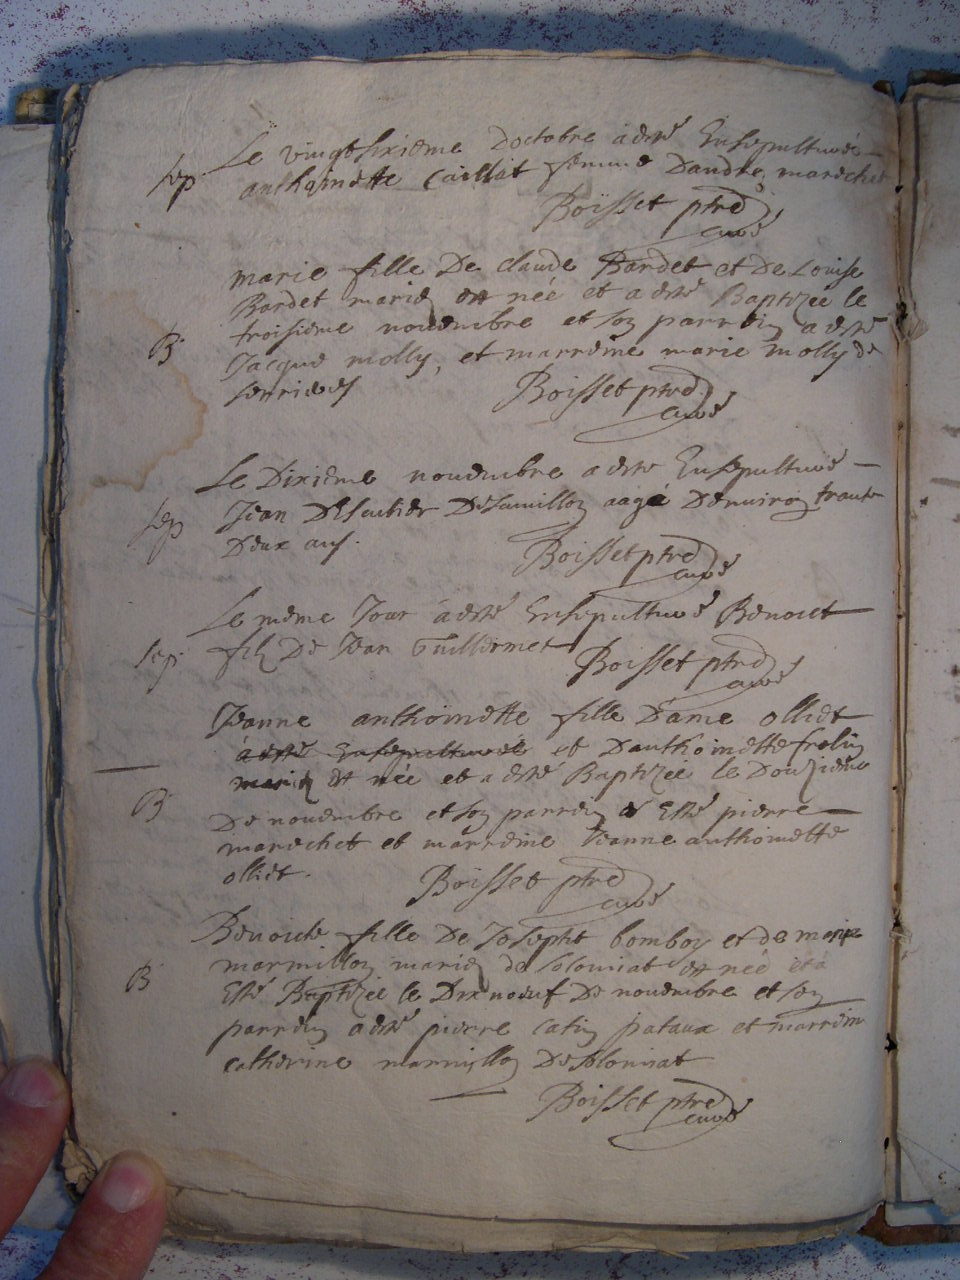 Le vingtsixieme Doctobre a esté Ensepulturée
sep anthoinette Caillat femme Dandré marechet
Boisset ptre
curé
marie fille De Claude Bardet et De Louise
Bardet mariez est née et a esté Baptizée le
troisieme nouembre et son parrein a esté
B Jacque molly, et marreine marie molly de
serrieres
Boisset ptre
curé
Le Dixieme nouembre a esté Ensepulturé
sep Jean aagé Denuiron trante
Deux ans.
Boisset ptre
curé
Le meme Jour a esté Ensepulturé Benoict
sep. filz De Jean Guillermet
Boisset ptre
curé
Jeanne anthoinette fille Dame olliet
a esté Ensepulturée et Danthoinette
mariez est née et a esté Baptizée le Douzieme
B De nouembre et son parrein a Esté pierre
marechet et marreine Jeanne anthoinette
olliet.
Boisset ptre
curé
Benoicte fille De Joseph bomboy et de marie
marmillon mariez de solomiat est née et a
B Esté Baptizée le Dix noeuf De nouembre et son
parrein a esté pierre catin pataux et marreine
catherine marmillon De solomiat
Boisset ptre
curé